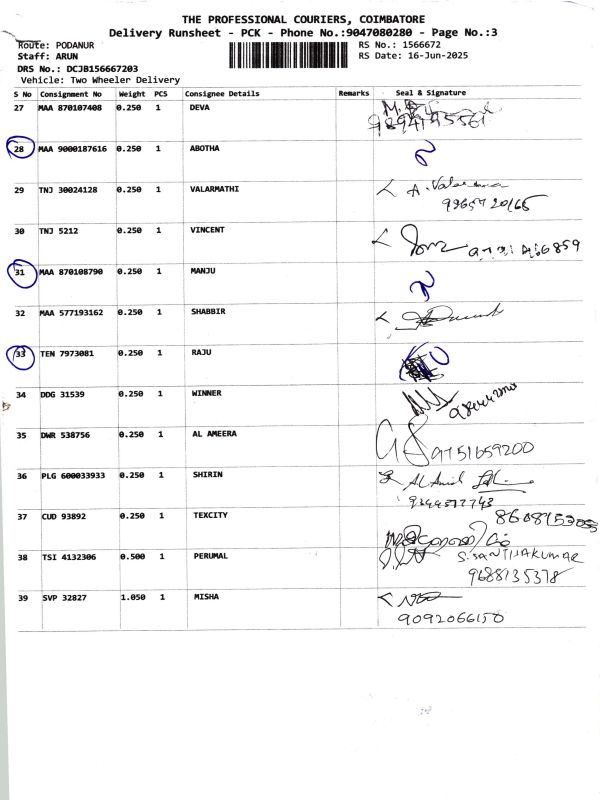 THE PROFESSIONAL COURIERS, COIMBATORE
Delivery Runsheet - PCK - Phone No.:9047080280 - Page No.:3
Route: PODANUR
RS No.: 1566672
Staff: ARUN
RS Date: 16-Jun-2025
DRS No.: DCJB156667203
Vehicle: Two Wheeler Delivery
S No Consignment No Weight PCS Consignee Details Remarks Seal & Signature
27 MAA 870107408 0.250 1 DEVA
28 MAA 9000187616 0.250 1 ABOTHA
29 TNJ 30024128 0.250 1 VALARMATHI
30 TNJ 5212 0.250 1 VINCENT
31 MAA 870108790 0.250 1 MANJU
32 MAA 577193162 0.250 1 SHABBIR
33 TEN 7973081 0.250 1 RAJU
34 DDG 31539 0.250 1 WINNER
35 DWR 538756 0.250 1 AL AMEERA 9751659200
36 PLG 600033933 0.250 1 SHIRIN
37 CUD 93892 0.250 1 TEXCITY
38 TSI 4132306 0.500 1 PERUMAL S.SANTHAKUMAR
9688135378
39 SVP 32827 1.050 1 MISHA
9092066150